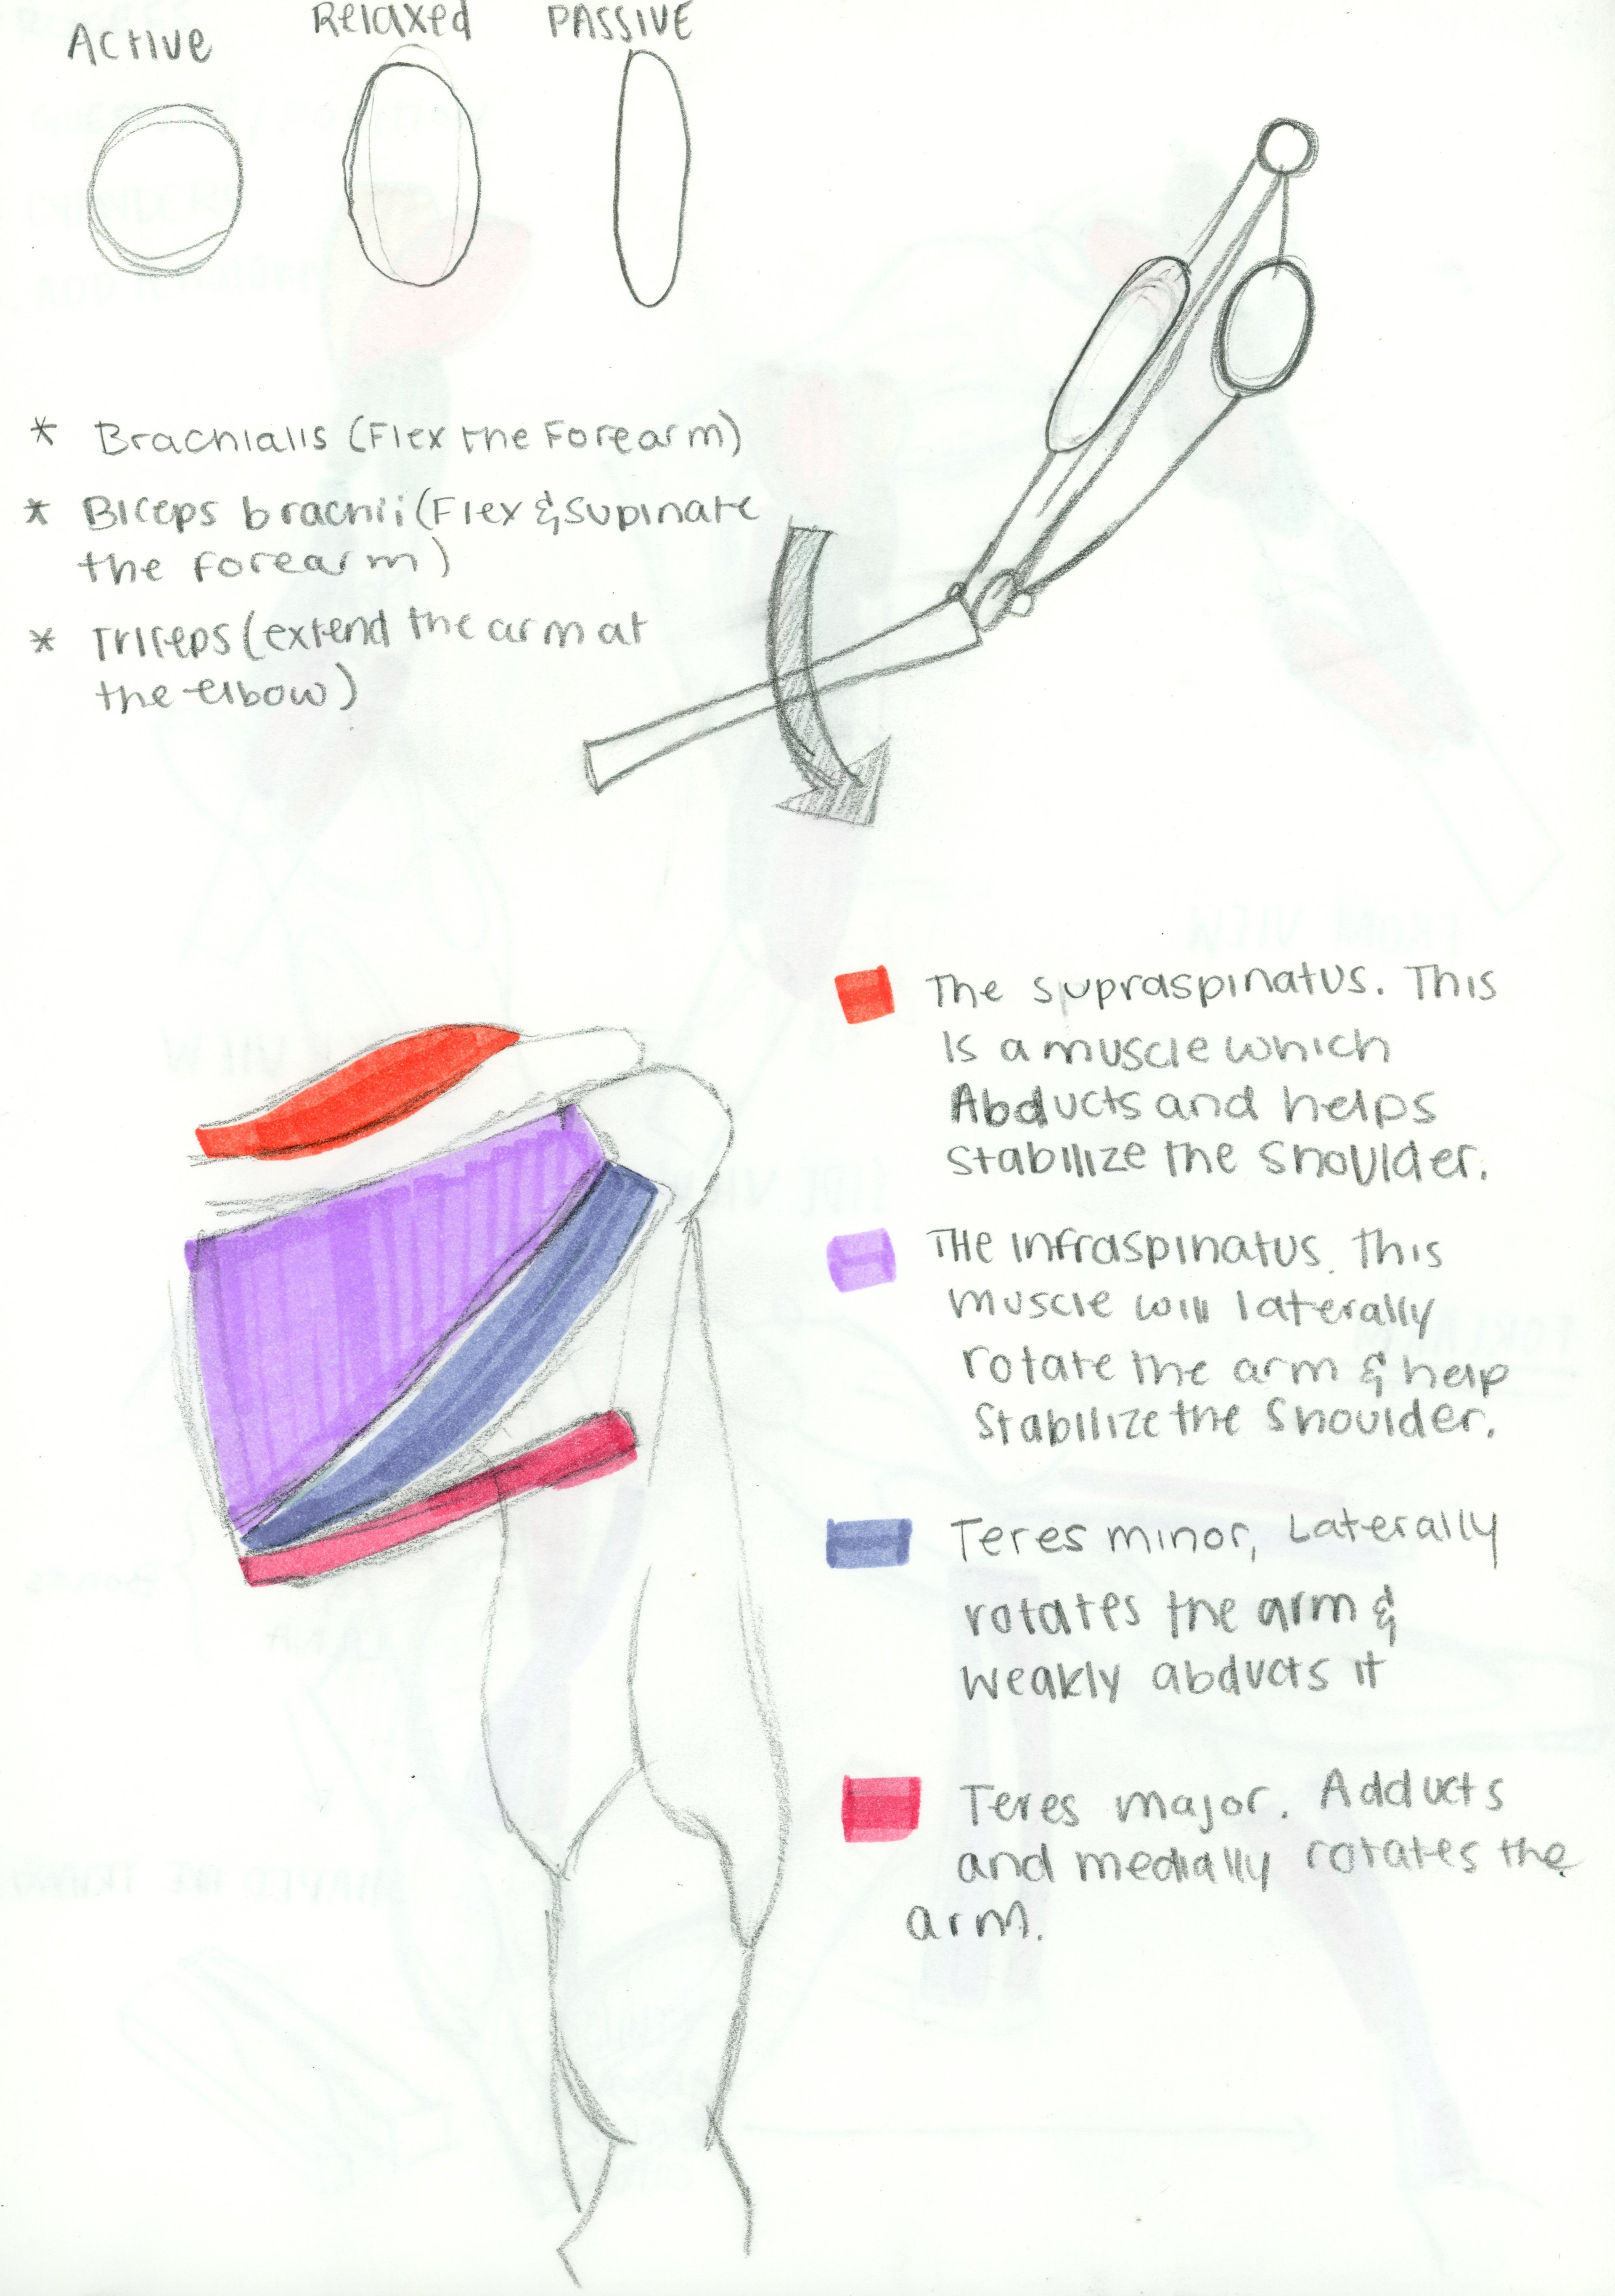 Active
Relaxed
PASSIVE
* Brachialis (Flex the Forearm)
* Biceps brachii (Flex & Supinate
the forearm)
* Triceps (extend the arm at
the elbow)
The supraspinatus. This
Is a muscle which
Abducts and helps
stabilize the shoulder.
THe infraspinatus. This
muscle will laterally
rotate the arm & help
Stabilize the Shoulder.
Teres minor, Laterally
rotates the arm &
weakly abducts it
Teres major. Adducts
and medially rotates the
arm.
FROM VIEW
SIDE VIEW